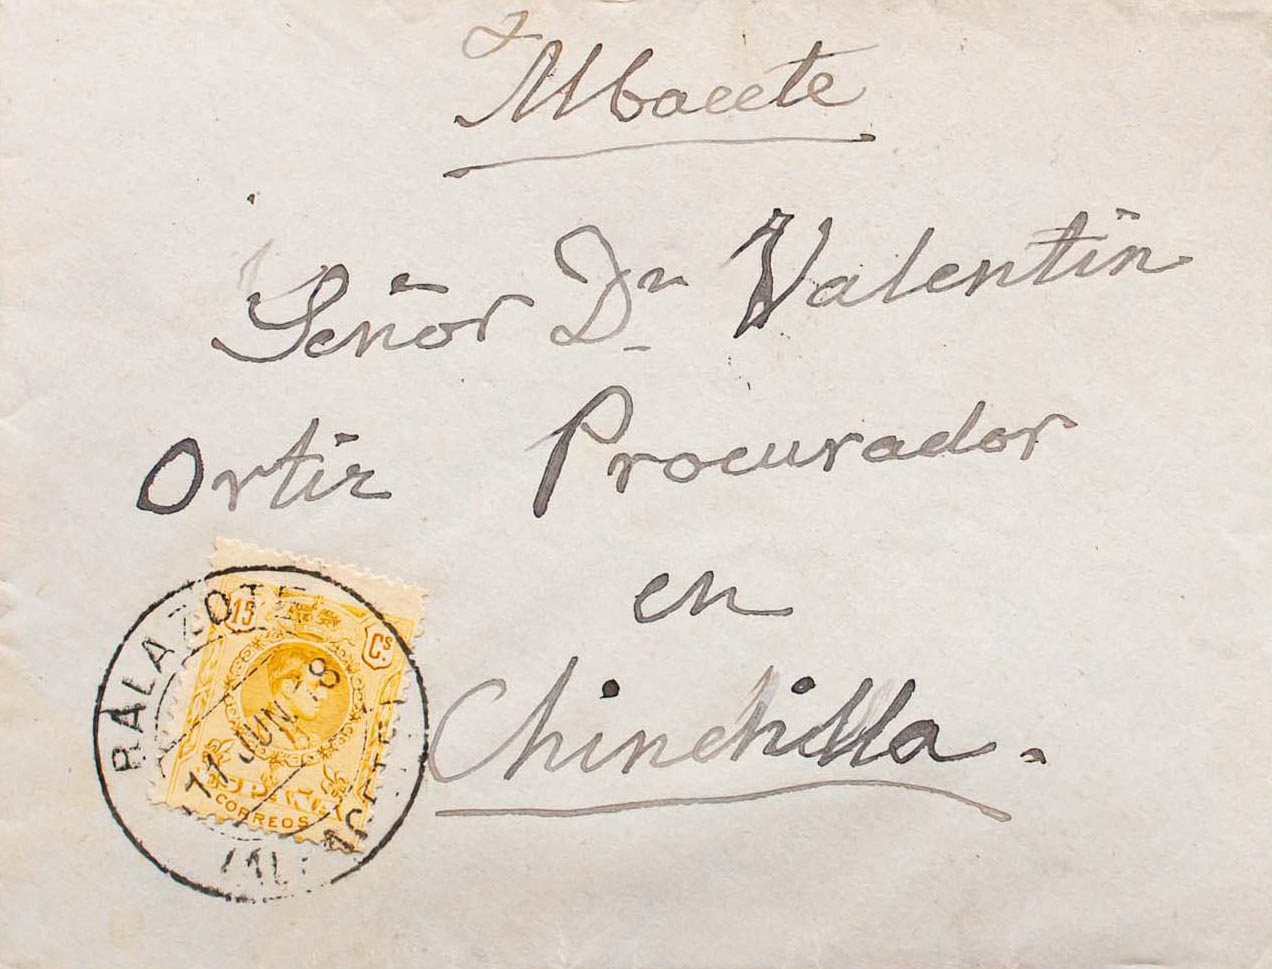 Albacete
Señor Dn Valentin
Ortiz Procurador
en
Chinchilla.
BALAZOTE
15 Cs
11 JUN 18
CORREOS